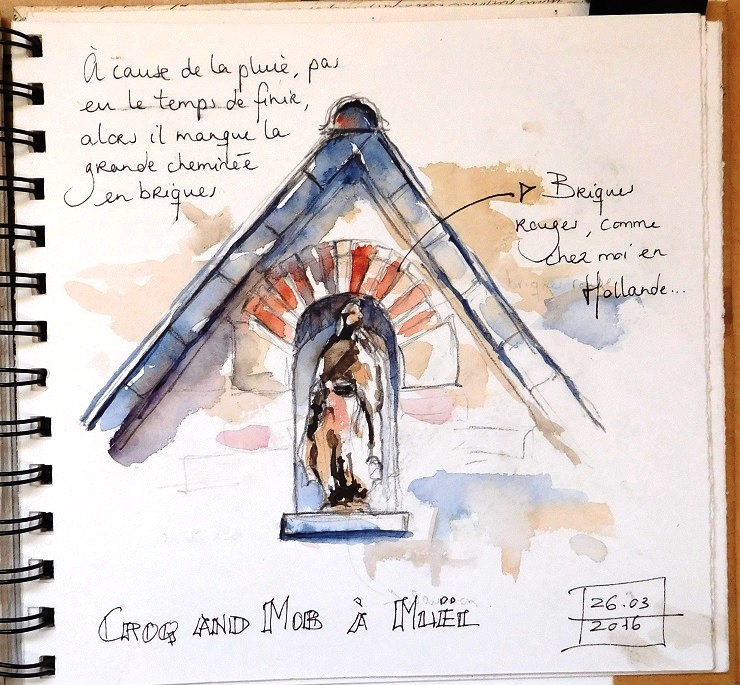 À cause de la pluie, pas
eu le temps de finir,
alors il manque la
grande cheminée
en briques
Briques
rouges, comme
chez moi en
Hollande...
CROQ AND MOB À MUËL
26.03
2016